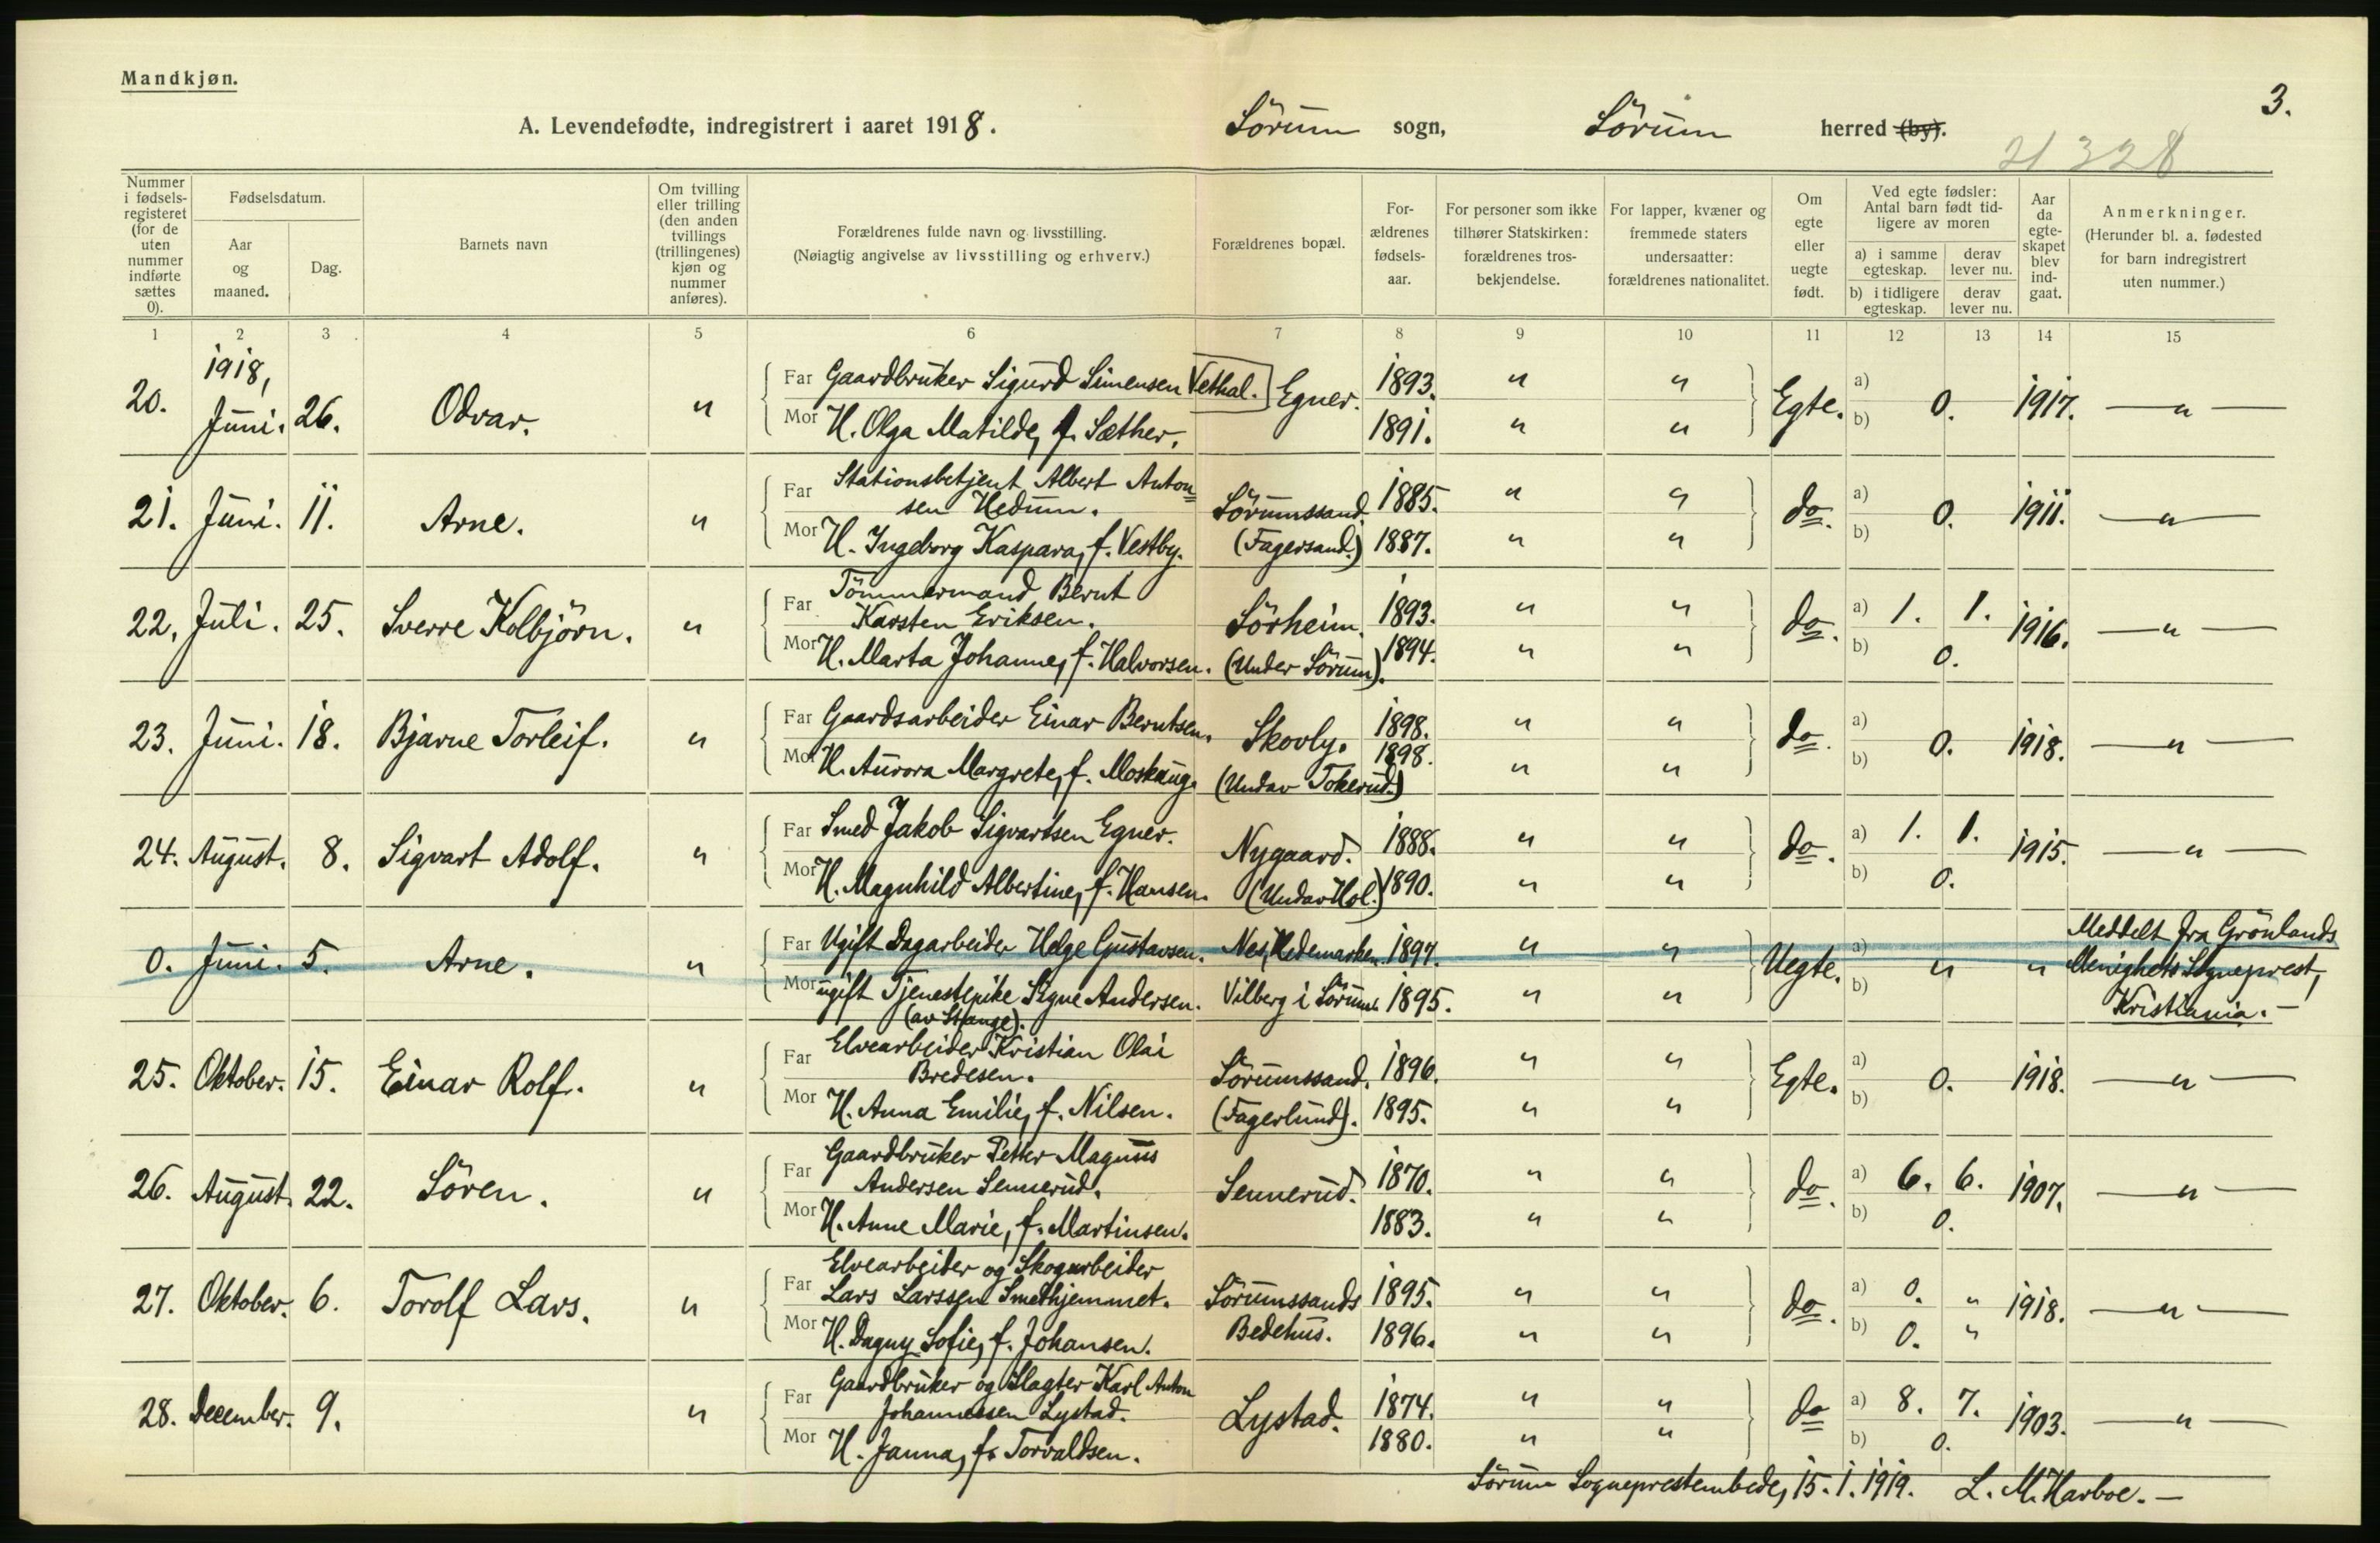 Mandkjøn.
3.
A. Levendefødte, indregistrert i aaret 1918. Sörum sogn, Sörum herred (by).
21328
Nummer i fødselsregisteret (for de uten nummer indførte sættes 0).
Fødselsdatum.
Aar og maaned.
Dag.
Barnets navn
Om tvilling eller trilling (den anden tvillings (trillingenes) kjøn og nummer anføres).
Forældrenes fulde navn og livsstilling.
(Nøiagtig angivelse av livsstilling og erhverv.)
Forældrenes bopæl.
Forældrenes fødselsaar.
For personer som ikke tilhører Statskirken: forældrenes trosbekjendelse.
For lapper, kvæner og fremmede staters undersaatter: forældrenes nationalitet.
Om egte eller uegte født.
Ved egte fødsler: Antal barn født tidligere av moren
a) i samme egteskap. derav lever nu.
b) i tidligere egteskap. derav lever nu.
Aar da egteskapet blev indgaat.
Anmerkninger.
(Herunder bl. a. fødested for barn indregistrert uten nummer.)
1 2 3 4 5 6 7 8 9 10 11 12 13 14 15
20. 1918, Juni. 26. Odvar. " Far Gaardbruker Sigurd Simensen Vethal. Egner. 1893. " " Egte. a) b) 0. 1917. — " —
Mor H. Olga Matilde, f. Sæther. 1891. " "
21. Juni. 11. Arne. " Far Stationsbetjent Albert Anton=
sen Hedum. Sörumssand. 1885. " " do. a) b) 0. 1911. — " —
Mor H. Ingeborg Kaspara, f. Vestby. (Fagersand.) 1887. " "
22. Juli. 25. Sverre Kolbjörn. " Far Tömmermand Bernt
Karsten Eriksen. Sörheim. 1893. " " do. a) 1. 1. 1916. — " —
Mor H. Marta Johanne, f. Halvorsen. (Under Sörum). 1894. " " b) 0.
23. Juni. 18. Bjarne Torleif. " Far Gaardsarbeider Einar Berntsen. Skovly. 1898. " " do. a) b) 0. 1918. — " —
Mor H. Aurora Margrete, f. Moskaug. (Under Tokerud.) 1898. " "
24. August. 8. Sigvart Adolf. " Far Smed Jakob Sigvartsen Egner. Nygaard. 1888. " " do. a) 1. 1. 1915. — " —
Mor H. Magnhild Albertine, f. Hansen. (Under Hol.) 1890. " " b) 0.
0. Juni. 5. Arne. " Far Ugift Dagarbeider Helge Gustavsen. Nes, Hedemarken. 1897. " " Uegte. a) b) " " Meddelt fra Grönlands
Mor ugift Tjenestepike Signe Andersen. Vilberg i Sörum. 1895. " " Menighets Sogneprest,
(av Stange). Kristiania. —
25. Oktober. 15. Einar Rolf. " Far Elvearbeider Kristian Olai
Bredesen. Sörumssand. 1896. " " Egte. a) b) 0. 1918. — " —
Mor H. Anna Emilie, f. Nilsen. (Fagerlund). 1895. " "
26. August. 22. Sören. " Far Gaardbruker Petter Magnus
Andersen Sennerud. Sennerud. 1870. " " do. a) 6. 6. 1907. — " —
Mor H. Anne Marie, f. Martinsen. 1883. " " b) 0.
27. Oktober. 6. Torolf Lars. " Far Elvearbeider og Skogarbeider
Lars Larssen Smedhjemmet. Sörumssands 1895. " " do. a) 0. " 1918. — " —
Mor H. Dagny Sofie, f. Johansen. Bedehus. 1896. " " b) 0. "
28. December. 9. " Far Gaardbruker og Slagter Karl Anton
Johannessen Lystad. Lystad. 1874. " " do a) 8. 7. 1903. — " —
Mor H. Janna, f. Torvaldsen. 1880. " " b) 0.
Sörum Sogneprestembede, 15.1.1919. L. M. Harboe. —